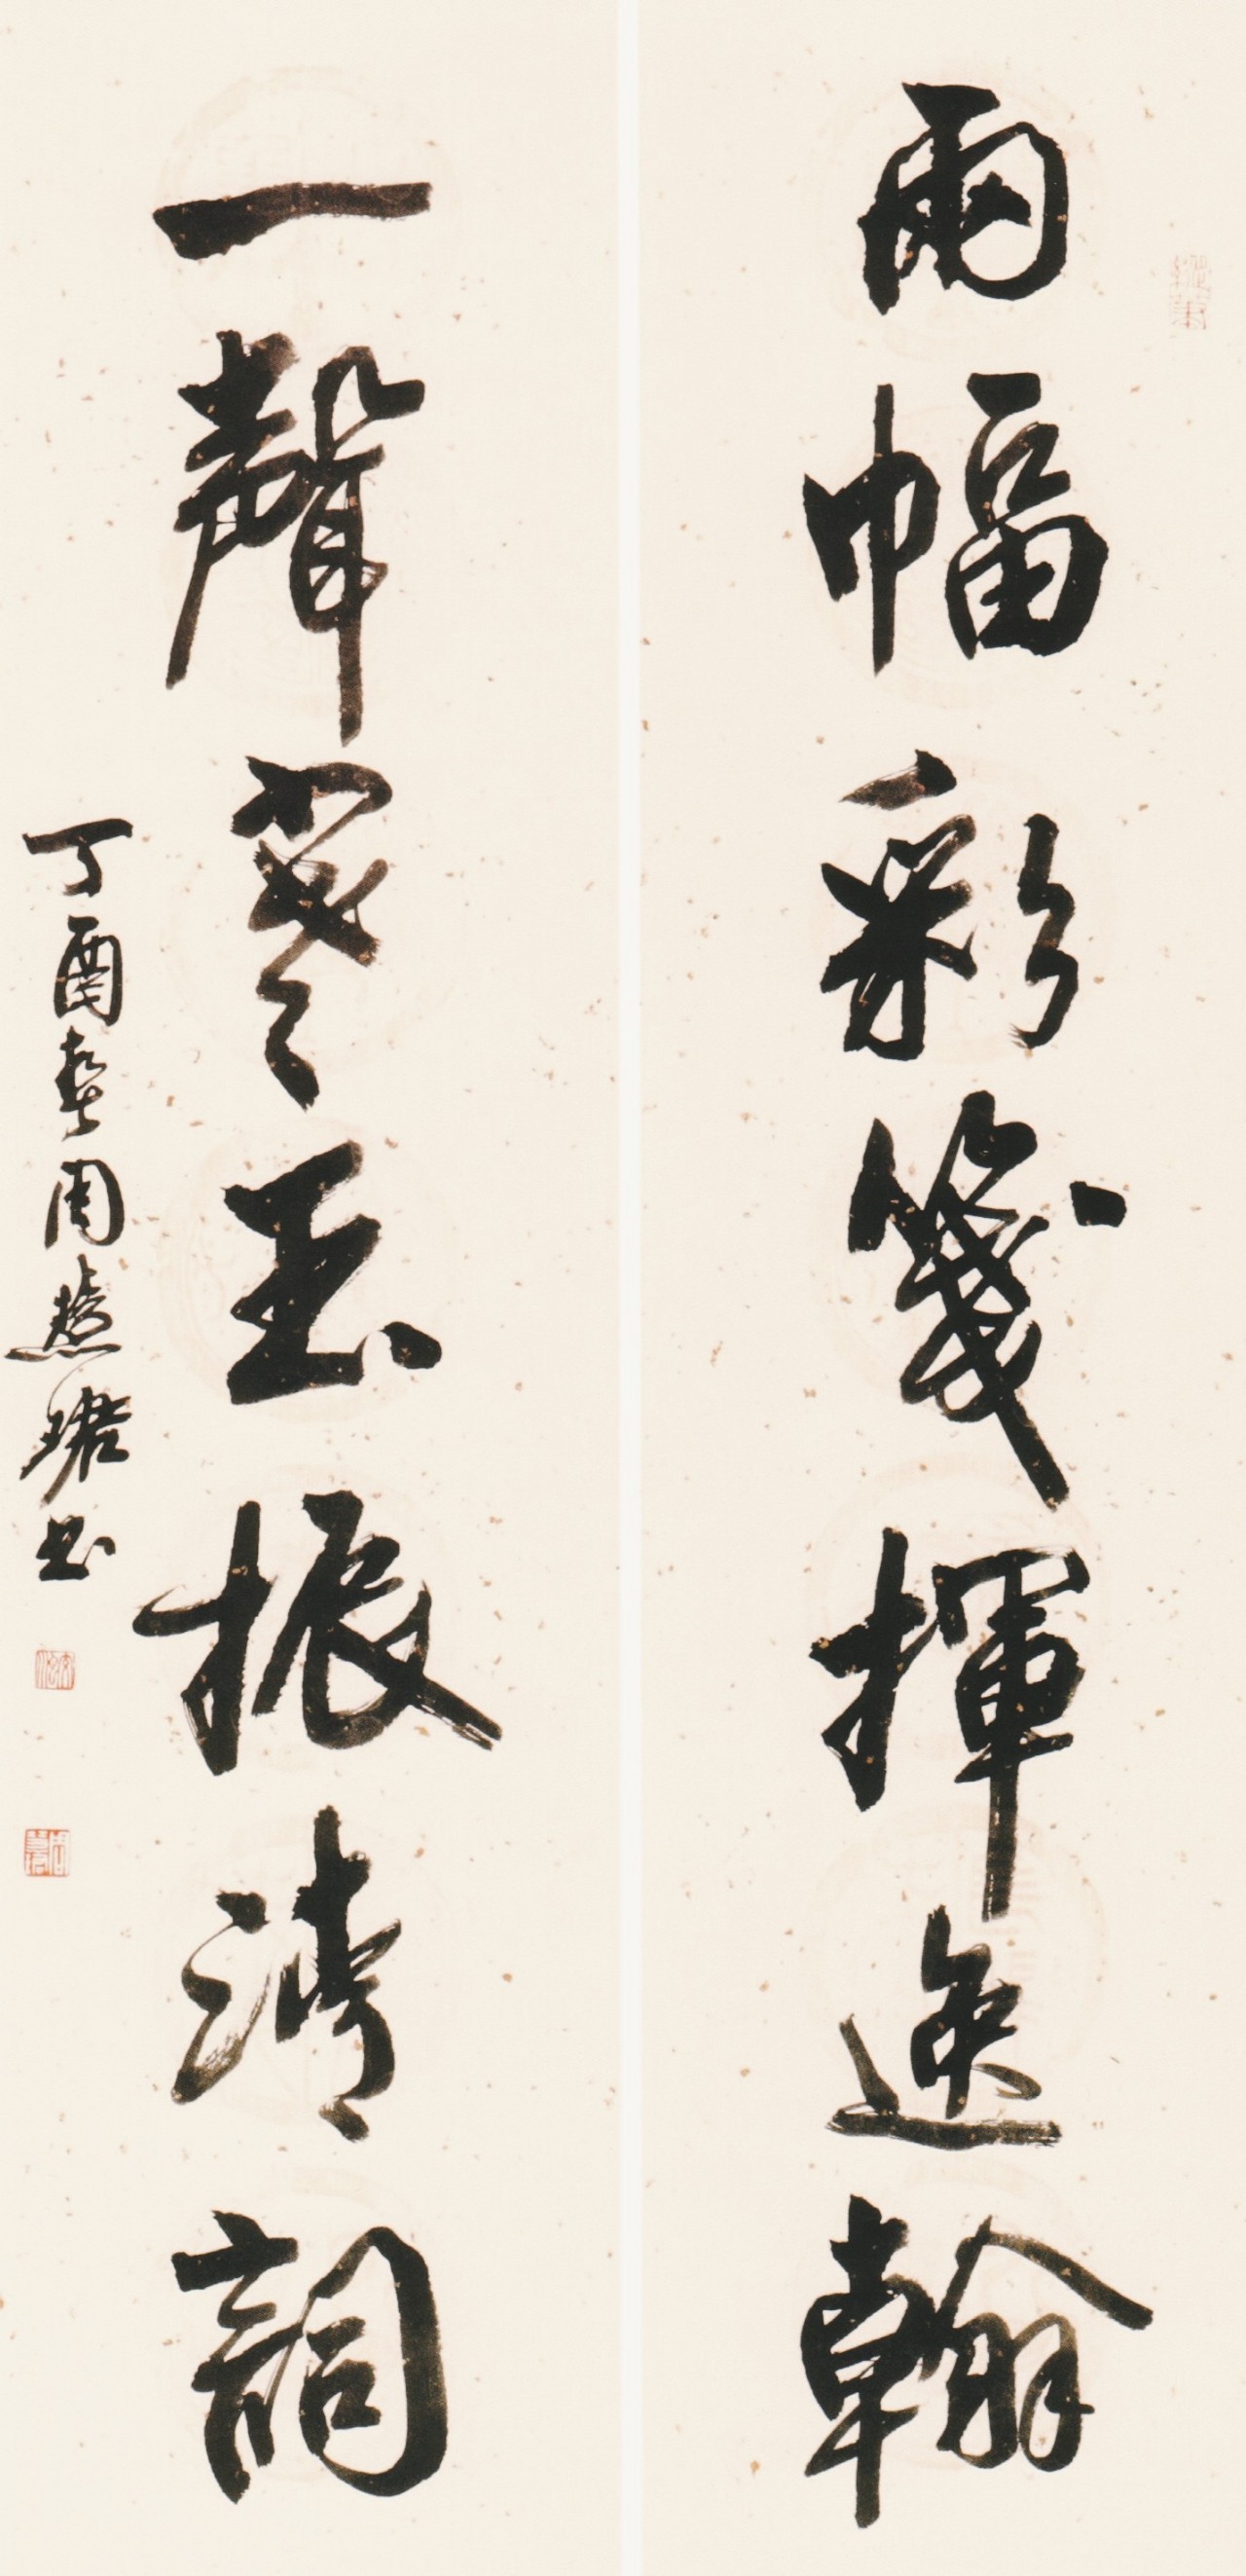 兩幅彩箋揮逸翰
一聲寒玉振清詞
丁酉春周慧珺書